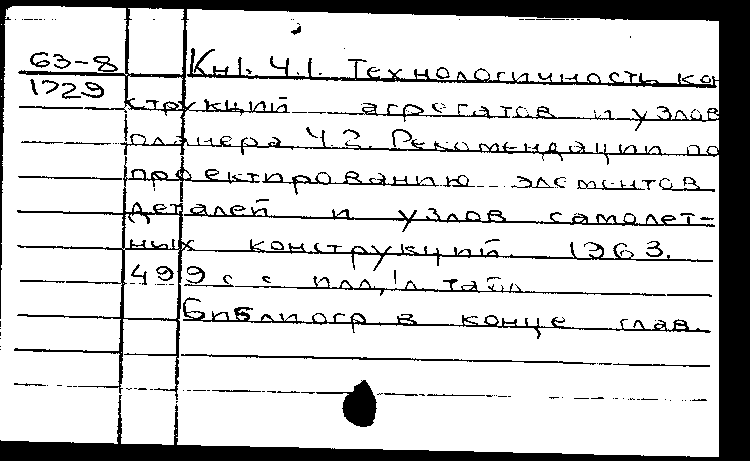 63-8
1729
Кн1. Ч.1. Технологичность кон
струкций агрегатов и узлов
планера Ч2. Рекомендации по
проектированию элементов
деталей и узлов самолет=
ных конструкций. 1963.
499 с с илл, 1 л. табл
Библиогр в конце глав.